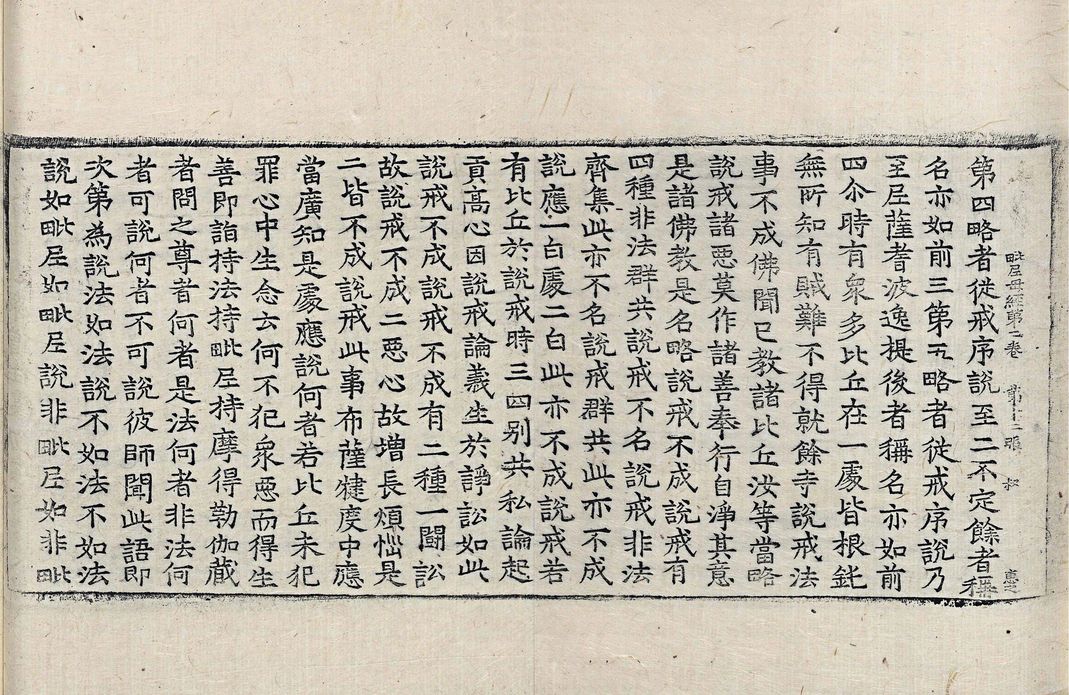 毗尼母經第二卷 第十二張 叔 惠之
第四略者從戒序說至二不定餘者稱
名亦如前三第五略者從戒序說乃
至尼薩耆波逸提後者稱名亦如前
四尒時有衆多比丘在一處皆根鈍
無所知有賊難不得就餘寺說戒法
事不成佛聞已教諸比丘汝等當略
說戒諸惡莫作諸善奉行自淨其意
是諸佛教是名略說戒不成說戒有
四種非法群共說戒不名說戒非法
齊集此亦不名說戒群共此亦不成
說應一白處二白此亦不成說戒若
有比丘於說戒時三四別共私論起
貢高心因說戒論義生於諍訟如此
說戒不成說戒不成有二種一鬪訟
故說戒不成二惡心故增長煩惱是
二皆不成說戒此事布薩犍度中應
當廣知是處應說何者若比丘未犯
罪心中生念云何不犯衆惡而得生
善即詣持法持毗尼持摩得勒伽藏
者問之尊者何者是法何者非法何
者可說何者不可說彼師聞此語即
次第為說法如法說不如法不如法
說如毗尼如毗尼說非毗尼如非毗